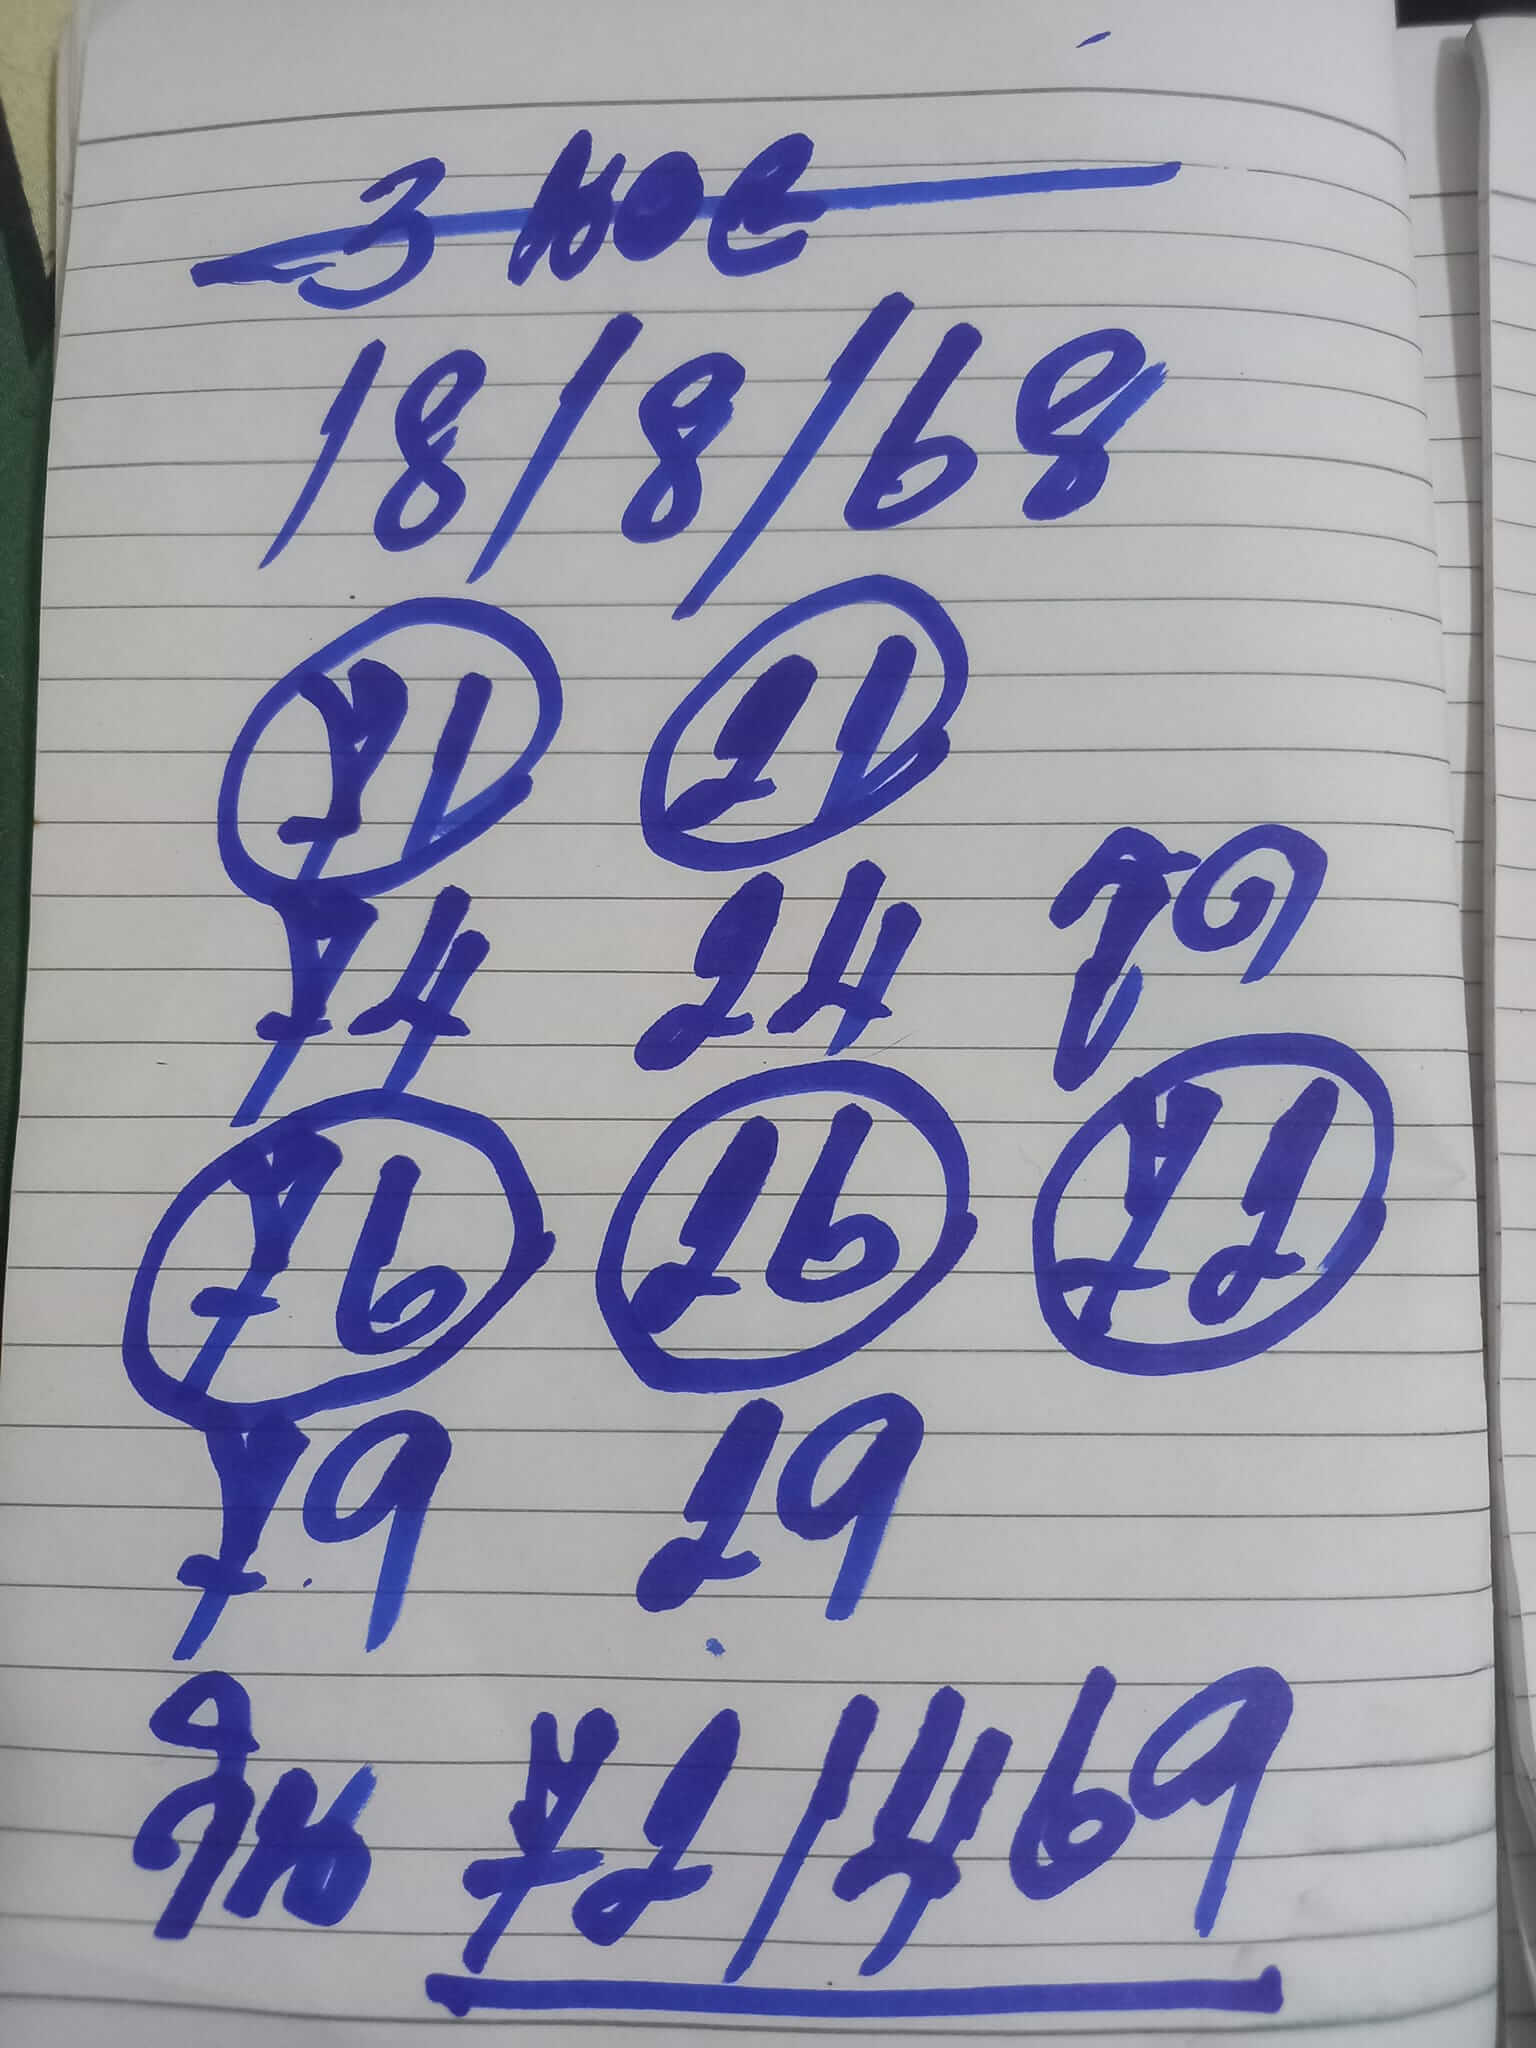 3 นอย
18/8/68
71 21
74 24 รูด
76 26 72
79 29
วิน 721469